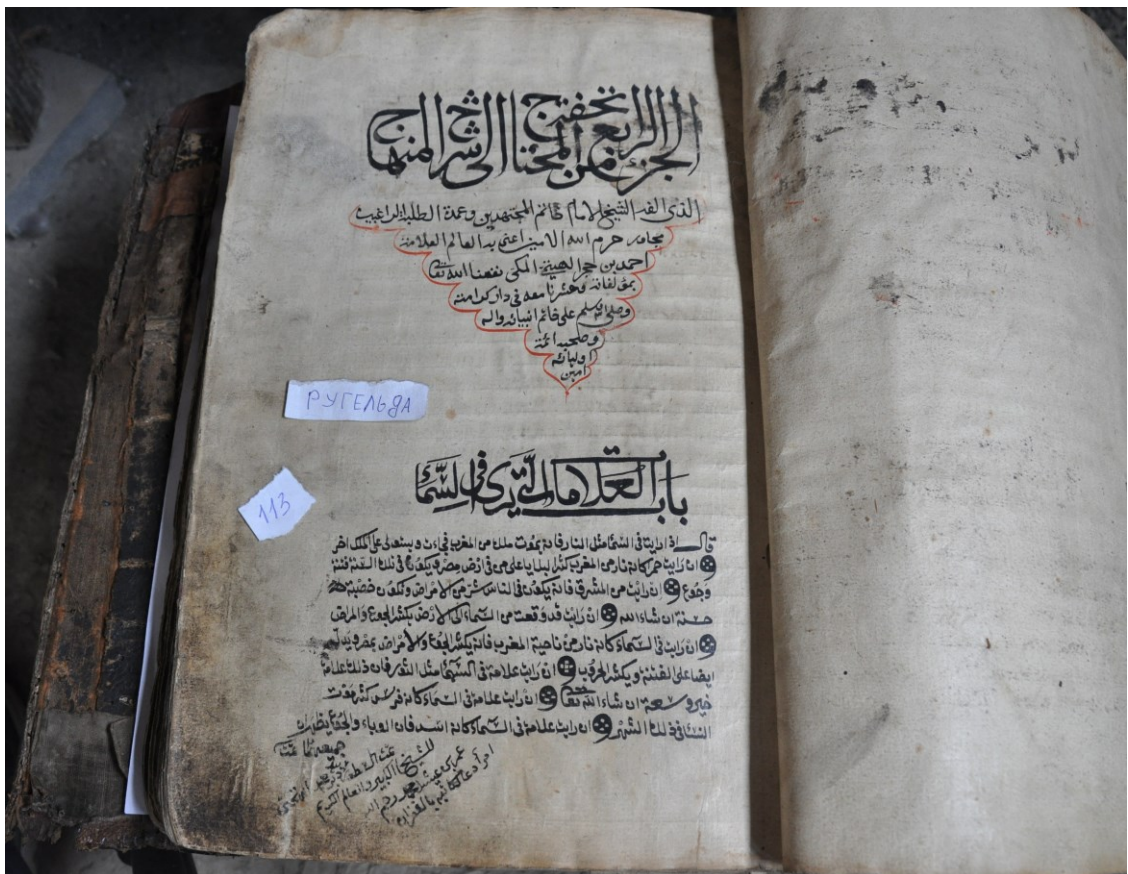 الجزء الرابع من تحفة المحتاج الى شرح المنهاج
الذى الفه الشيخ الامام خاتم المجتهدين وعمدة الطلبة الراغبين
مجاور حرم الله الامين اعنى به العالم العلامة
احمد بن حجر الهيتمى المكى نفعنا الله تعالى
بمؤلفاته وحشرنا معه فى دار كرامته
وصلى الله وسلم على خاتم انبيائه واله
وصحبه ائمة
اوليائه
امين
РУГЕЛЬДА
باب العلامات التى ترى فى السماء
113
قال اذا رايت فى السماء مثل النار فانه يموت ملك من المغرب
ان رايت حمرا كانه نار من المغرب كثر البلايا على من فى ارض مصر ويكون فى ذلك السنة فتنة
وجوع ان رايت من المشرق فانه يكون فى الناس شئ من الامراض وتكون خصبة
حسنة ان شاء الله ان رايت قد وقعت من السماء الى الارض يكثر الجوع والمرض
ان رايت فى السماء كانه نار من ناحية المغرب فانه يكثر الجوع والامراض بمصر ويدل
ايضا على الفتنة ويكثر الحروب ان رايت علامة فى السماء مثل القمر فان ذلك علامة
خير وسعة ان شاء الله تعالى ان رايت علامة فى السماء كانه فرس كثر موت
النساء فى ذلك الشهر ان رايت علامة فى السماء كانه اسد فان الوباء والجوع يظهران